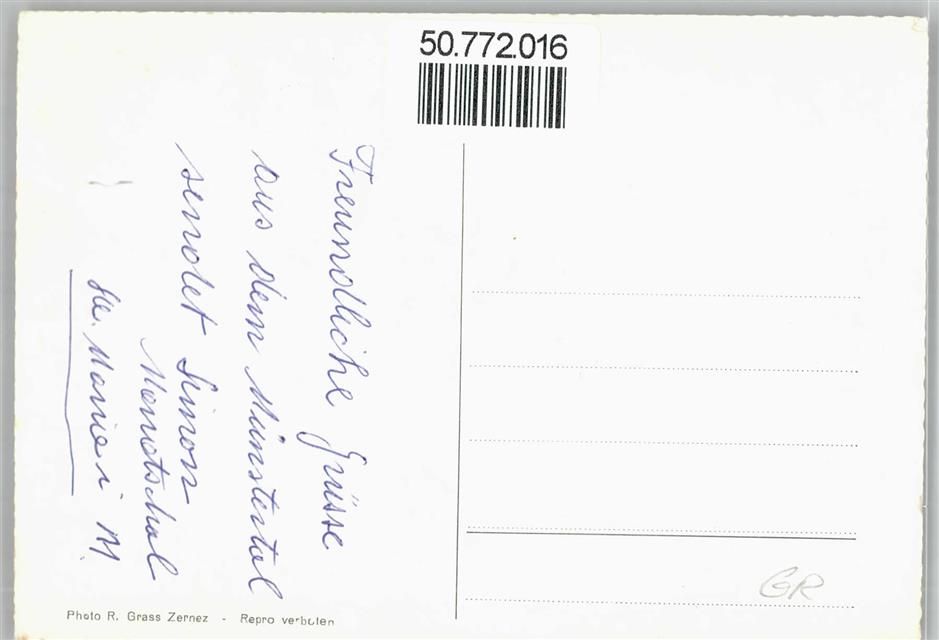 50.772.016
Freundliche Grüsse
aus dem Münstertal
sendet Simon
Sta. Maria i M.
GR
Photo R. Grass Zernez - Repro verboten